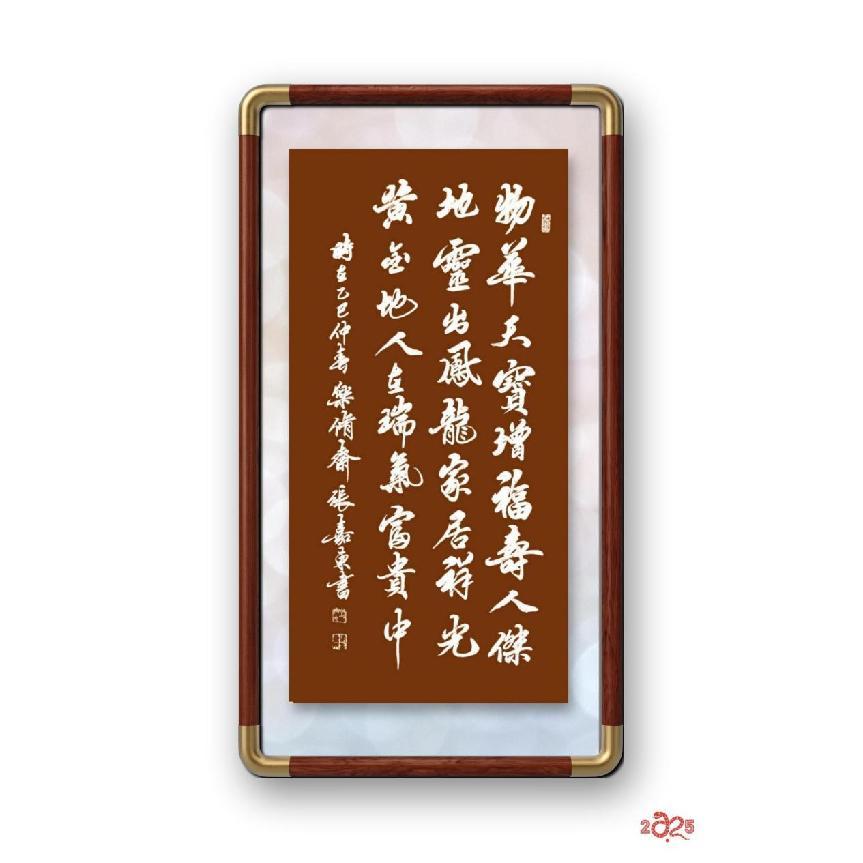 物華天寶增福壽人傑
地靈出鳳龍家居祥光
黃金地人在瑞氣富貴中
時在乙巳仲春樂脩齋張嘉東書
2025